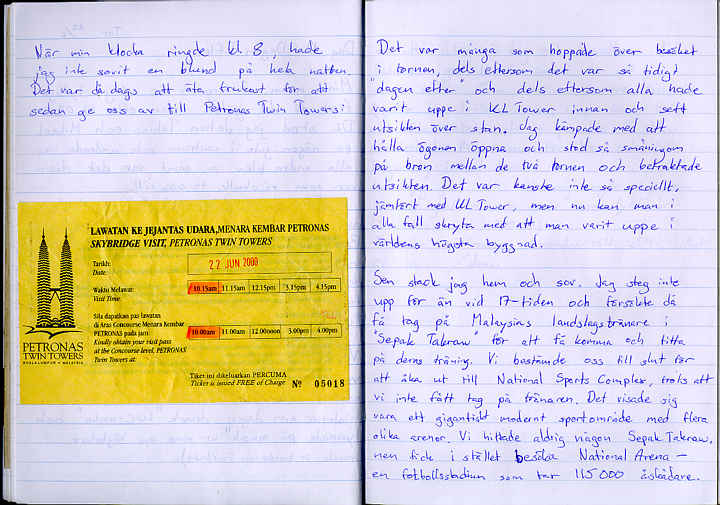 När min klocka ringde kl. 8, hade
jag inte sovit en blund på hela natten.
Det var då dags att äta frukost för att
sedan ge oss av till Petronas Twin Towers:
LAWATAN KE JEJANTAS UDARA, MENARA KEMBAR PETRONAS
SKYBRIDGE VISIT, PETRONAS TWIN TOWERS
Tarikh:
Date:
22 JUN 2000
Waktu Melawat:
Visit Time:
10.15am 11.15am 12.15pm 3.15pm 4.15pm
Sila dapatkan pas lawatan
di Aras Concourse Menara Kembar
PETRONAS pada jam:
Kindly obtain your visit pass
at the Concourse level, PETRONAS
Twin Towers at:
10.00am 11.00am 12.00noon 3.00pm 4.00pm
PETRONAS
TWIN TOWERS
KUALA LUMPUR • MALAYSIA
Tiket ini dikeluarkan PERCUMA
Ticket is issued FREE of Charge
№ 05018
Det var många som hoppade över besöket
i tornen, dels eftersom det var så tidigt
"dagen efter" och dels eftersom alla hade
varit uppe i KL Tower innan och sett
utsikten över stan. Jag kämpade med att
hålla ögonen öppna och stod så småningom
på bron mellan de två tornen och betraktade
utsikten. Det var kanske inte så speciellt,
jämfört med KL Tower, men nu kan man i
alla fall skryta med att man varit uppe i
världens högsta byggnad.
Sen stack jag hem och sov. Jag steg inte
upp för än vid 17-tiden och försökte då
få tag på Malaysias landslagstränare i
"Sepak Takraw" för att få komma och titta
på deras träning. Vi bestämde oss till slut för
att åka ut till National Sports Complex, trots att
vi inte fått tag på tränaren. Det visade sig
vara ett gigantiskt modernt sportområde med flera
olika arenor. Vi hittade aldrig någon Sepak Takraw,
men fick i stället besöka National Arena –
en fotbollsstadium som tar 115 000 åskådare.